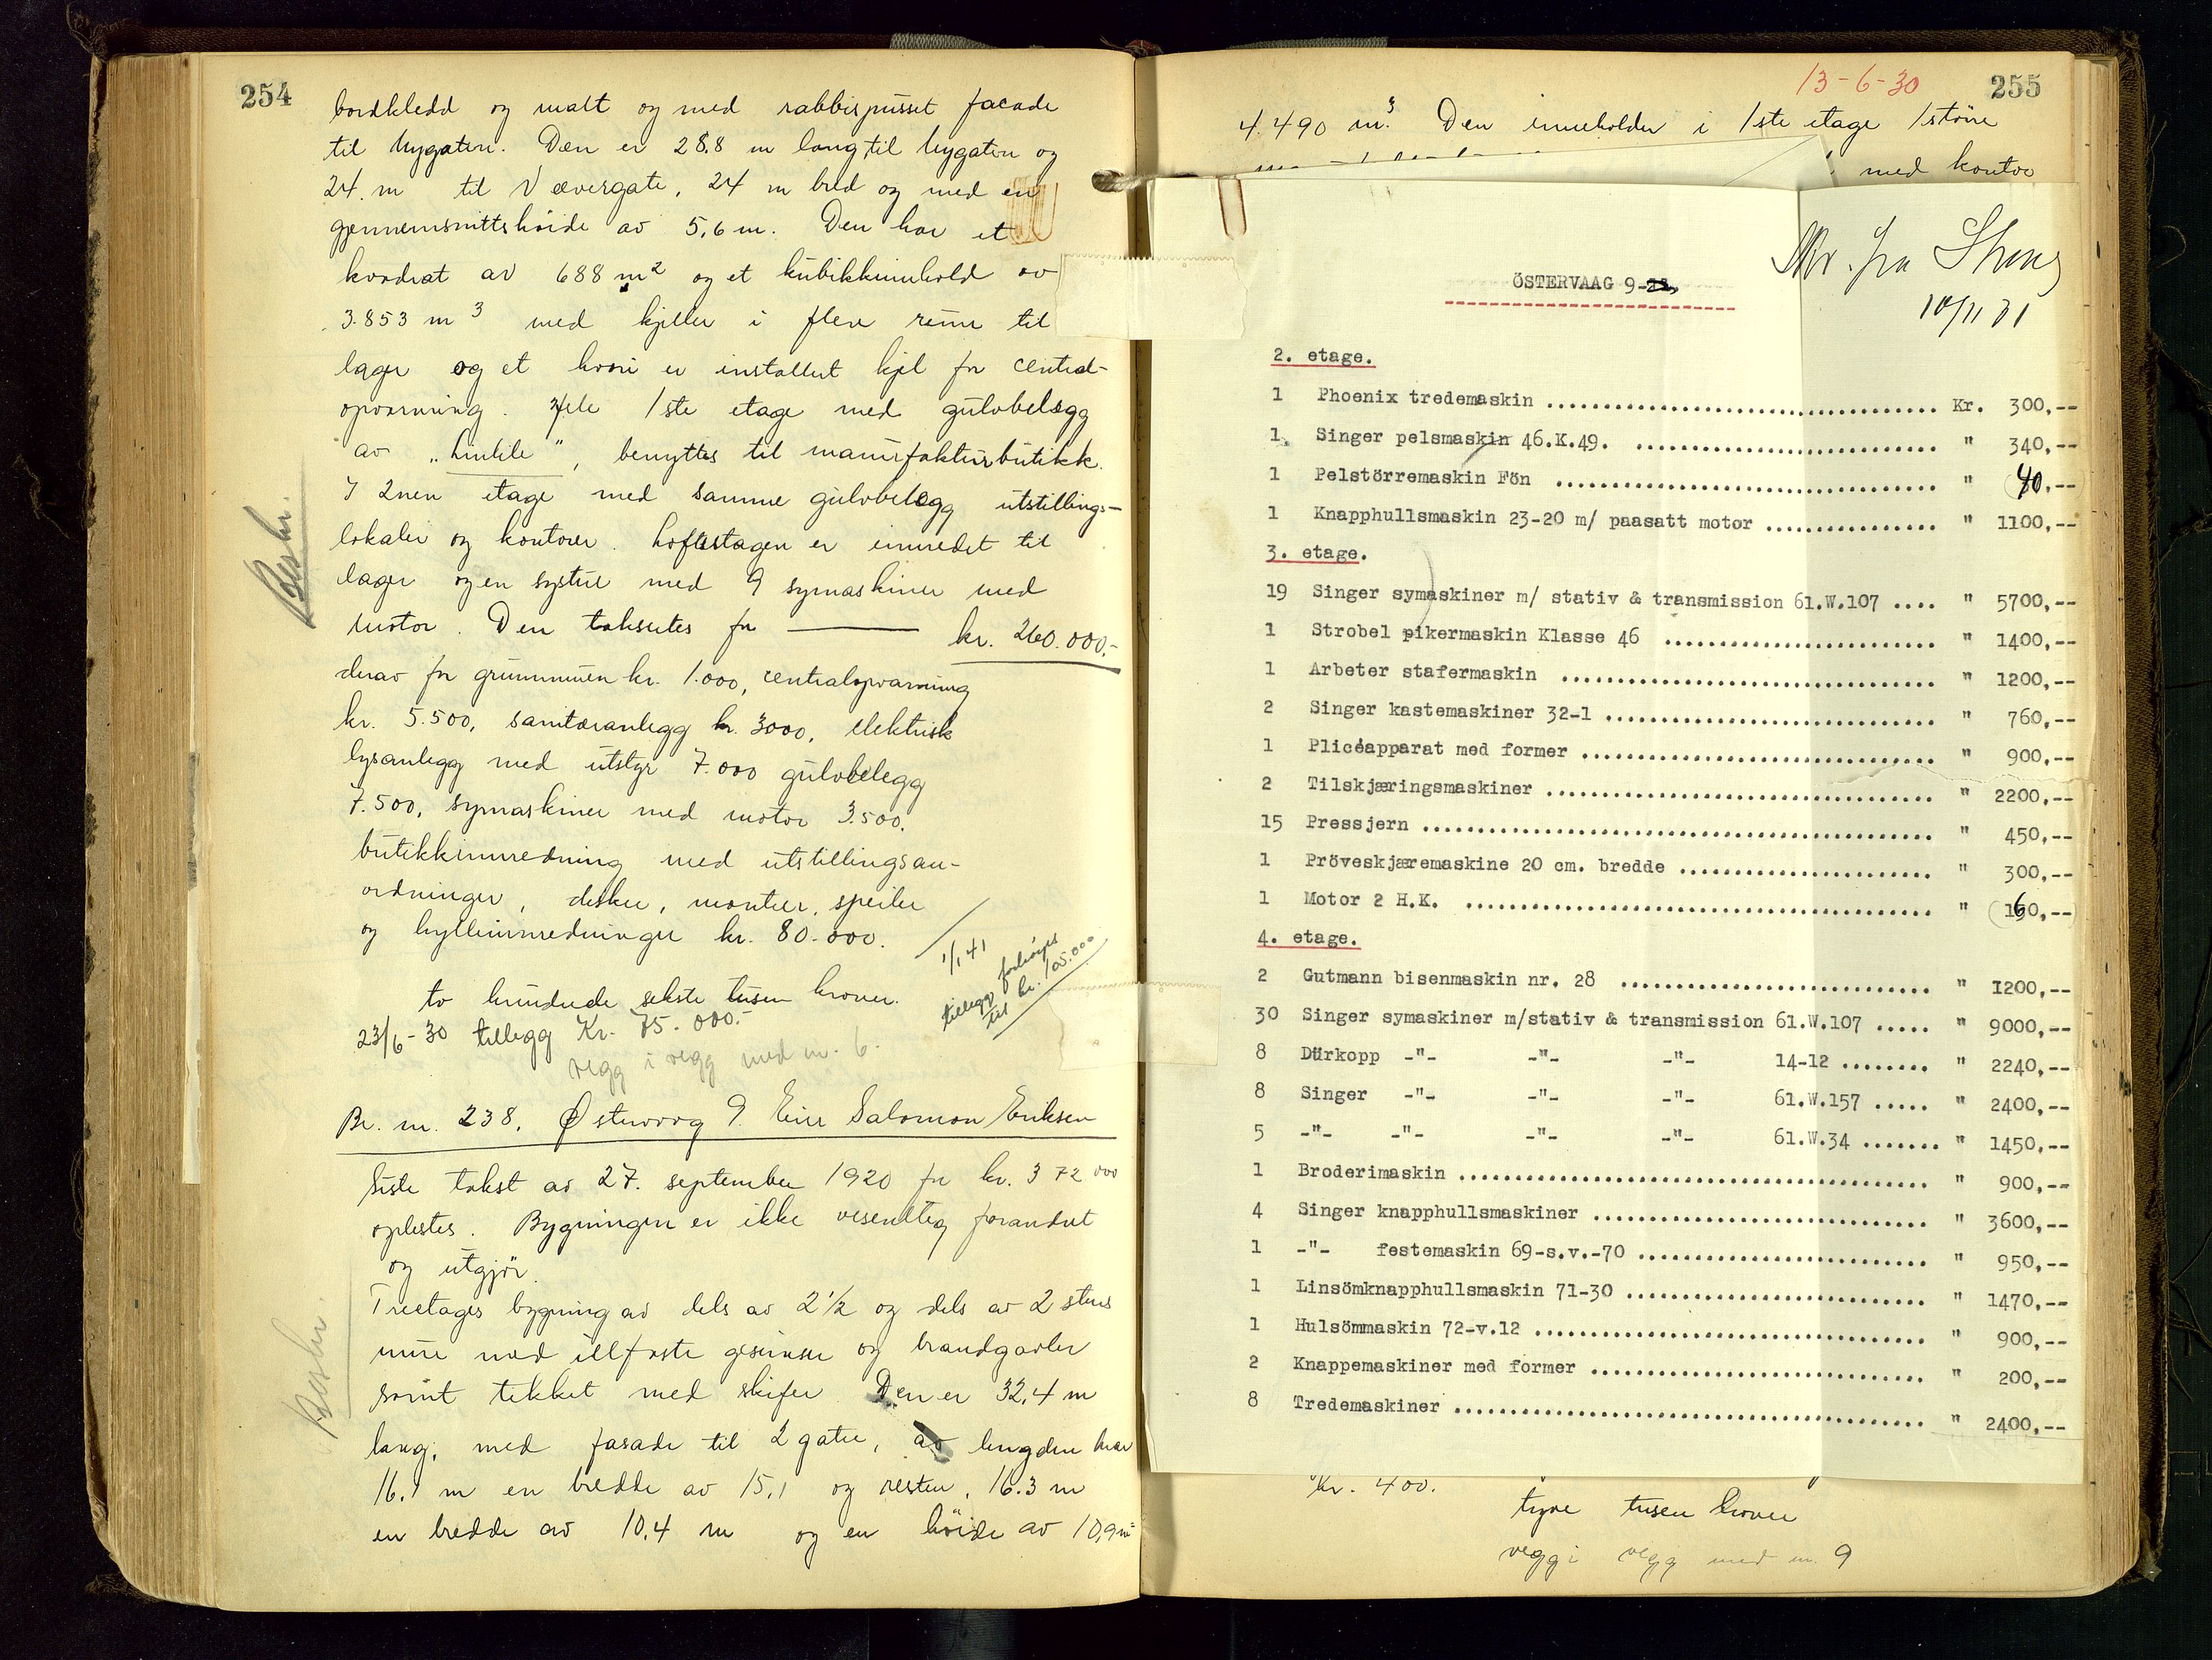 254
bordkledd og malt og med rabbispusset facade
til Nygaten. Den er 28,8 m lang til Nygaten og
24. m til Vævergate, 24 m bred og med en
gjennemsnittshöide av 5,6 m. Den har et
kvadrat av 688 m2 og et kubikkinnhold av
3.853 m3 med kjeller i flere rum til
lager og et hvori er installert kjel for central-
opvarming. Hele 1ste etage med gulvbelegg
av „Linkile”, benyttes til manufakturbutikk.
I 2nen etage med samme gulvbelegg utstillings-
lokaler og kontorer. Loftsetagen er innredet til
lager og en systue med 9 symaskiner med
motor. Den taksertes for kr. 260.000,-
derav for grunnmuren kr. 1.000, centralopvarming
kr. 5.500, sanitæranlegg kr. 3000, elektrisk
lysanlegg med utstyr 7.000 gulvbelegg
7.500, symaskiner med motor 3.500,
butikkinnredning med utstillingsan-
ordninger, disker, montrer, speiler
og hylleinnredninger kr. 80.000.
1/1 41
tillegg forhöyes
til kr. 105.000
to hundrede sekste tusen kroner.
23/6-30 tillegg Kr. 75.000.-
vegg i vegg med nr. 6.
Br. nr. 238. Østervaag 9. Eier Salomon Eriksen
Siste takst av 27. september 1920 for kr. 372 000
oplestes. Bygningen er ikke vesentlig forandret
og utgjör.
Treetages bygning av dels av 2 1/2 og dels av 2 stens
mure med illfaste gesimser og brandgavler
samt tekket med skifer. Den er 32,4 m
lang, med fasade til 2 gater, av lengden har
16,1 m en bredde av 15,1 og resten, 16.3 m
en bredde av 10,4 m og en höide av 10,9 m
Beskr.
Beskr.
13-6-30
255
4.490 m3. Den inneholder i 1ste etage 1 större
med kontor
10/11 31
ÖSTERVAAG 9-
2. etage.
1 Phoenix tredemaskin ........ Kr. 300,--
1 Singer pelsmaskin 46.K.49. ........ " 340,--
1 Pelstörremaskin Fön ........ " 40,--
1 Knapphullsmaskin 23-20 m/ paasatt motor ........ " 1100,--
3. etage.
19 Singer symaskiner m/ stativ & transmission 61.W.107 .... " 5700,--
1 Strobel pikermaskin Klasse 46 ........ " 1400,--
1 Arbeter stafermaskin ........ " 1200,--
2 Singer kastemaskiner 32-1 ........ " 760,--
1 Plicéapparat med former ........ " 900,--
2 Tilskjæringsmaskiner ........ " 2200,--
15 Pressjern ........ " 450,--
1 Pröveskjæremaskine 20 cm. bredde ........ " 300,--
1 Motor 2 H.K. ........ " 160,--
4. etage.
2 Gutmann bisenmaskin nr. 28 ........ " 1200,--
30 Singer symaskiner m/stativ & transmission 61.W.107 ..... " 9000,--
8 Dürkopp -"- -"- -"- 14-12 ........ " 2240,--
8 Singer -"- -"- -"- 61.W.157 ..... " 2400,--
5 -"- -"- -"- -"- 61.W.34 ....... " 1450,--
1 Broderimaskin ........ " 900,--
4 Singer knapphullsmaskiner ........ " 3600,--
1 -"- festemaskin 69-s.v.-70 ........ " 950,--
1 Linsömknapphullsmaskin 71-30 ........ " 1470,--
1 Hulsömmaskin 72-v.12 ........ " 900,--
2 Knappemaskiner med former ........ " 200,--
8 Tredemaskiner ........ " 2400,--
kr. 400.
tyve tusen kroner
vegg i vegg med nr. 9